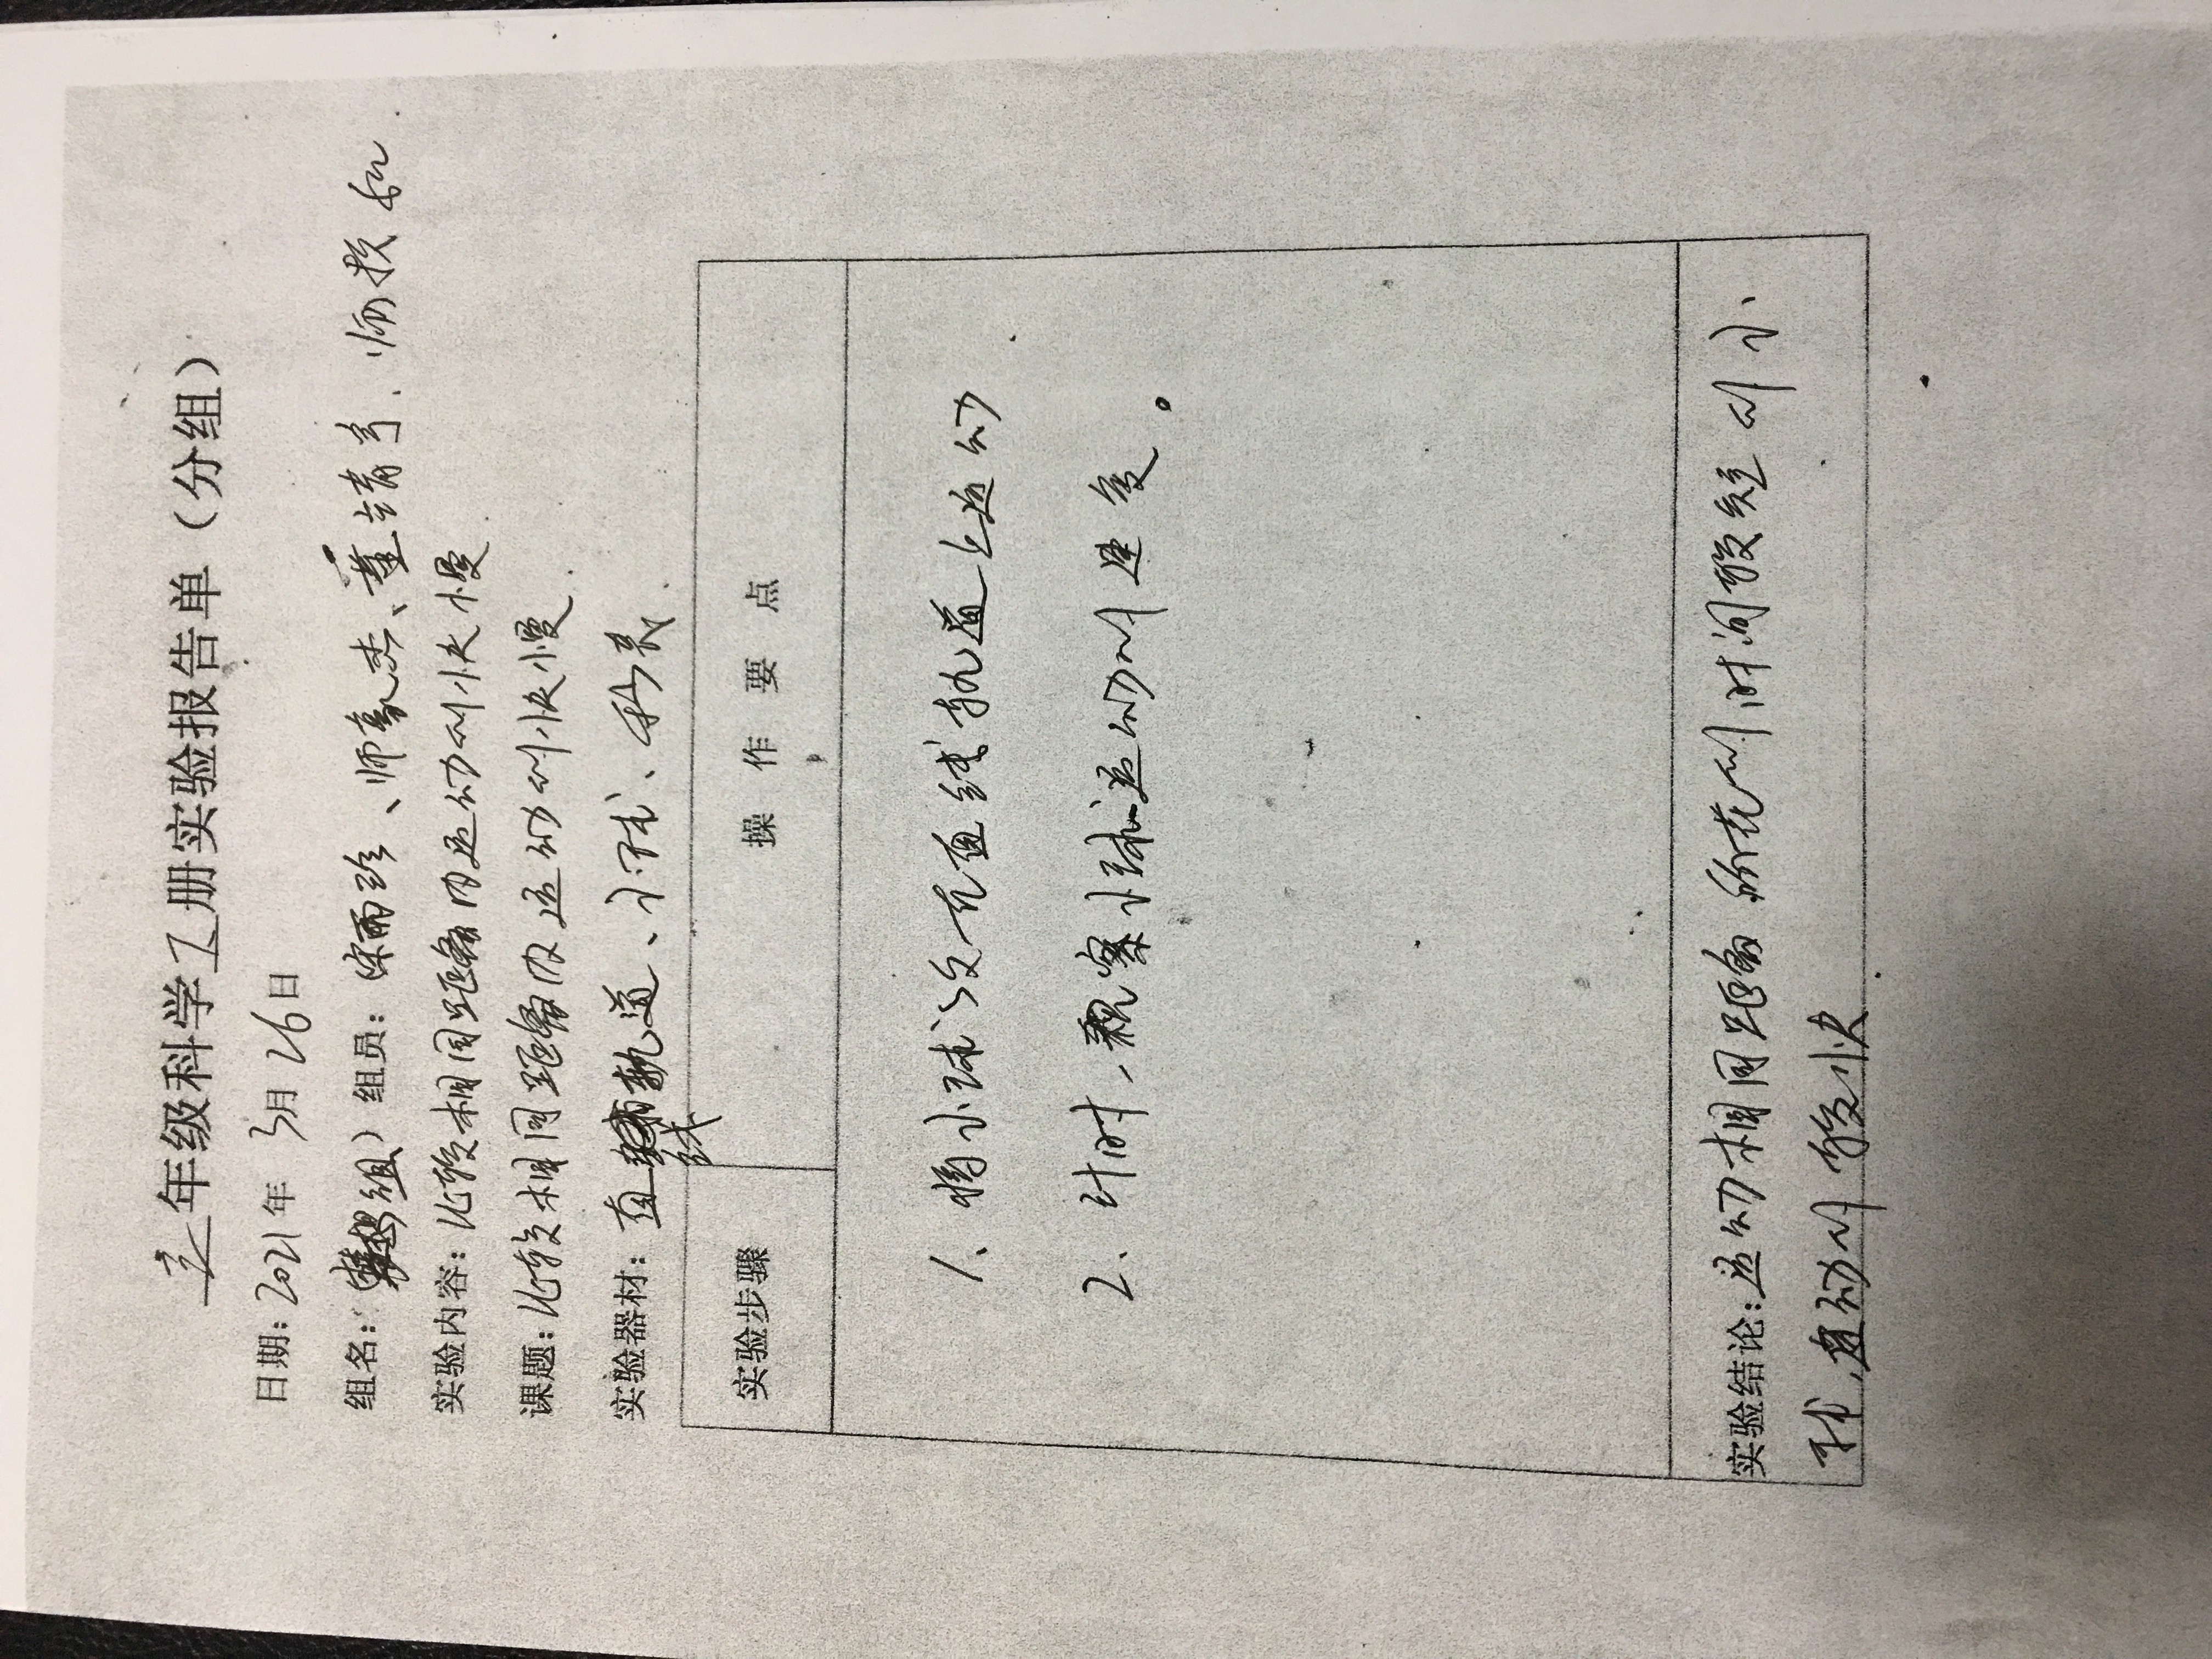 三年级科学下册实验报告单（分组）
日期：2021年 3月 26日
组名： 组）组员：雨珍、师豪杰、董靖芳、师
实验内容：比较相同距离内运动的快慢
课题：比较相同距离内运动的快慢
实验器材：直线轨道、小球、秒表.
实验步骤 操作要点
1、将小球放在直线轨道上运动
2、计时，观察小球运动的速度。
实验结论：运动相同距离所花的时间较短的小
球，运动的较快